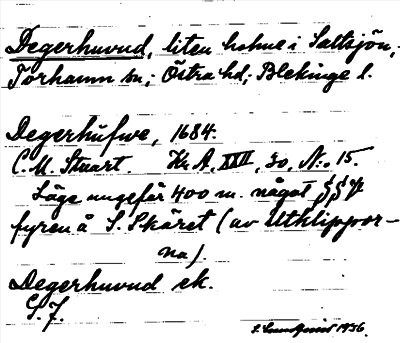 Degerhuvud, liten holme i Saltsjön,
Torhamn sn; Östra hd; Blekinge l.
Degerhufwe, 1684.
C. M. Stuart. Kr. A. XXII, 30, N:o 15.
Läge ungefär 400 m. något
fyren å S. Skäret (av Utklippor-
na).
Degerhuvud ek.
S. F.
1936.